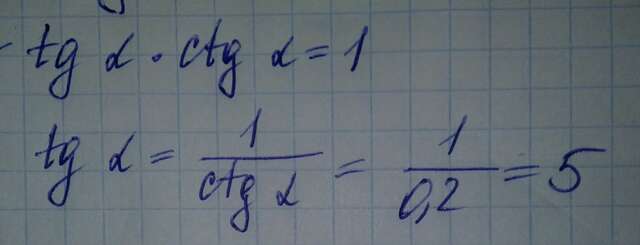 tg α · ctg α = 1
tg α = 1/ctg α = 1/0,2 = 5